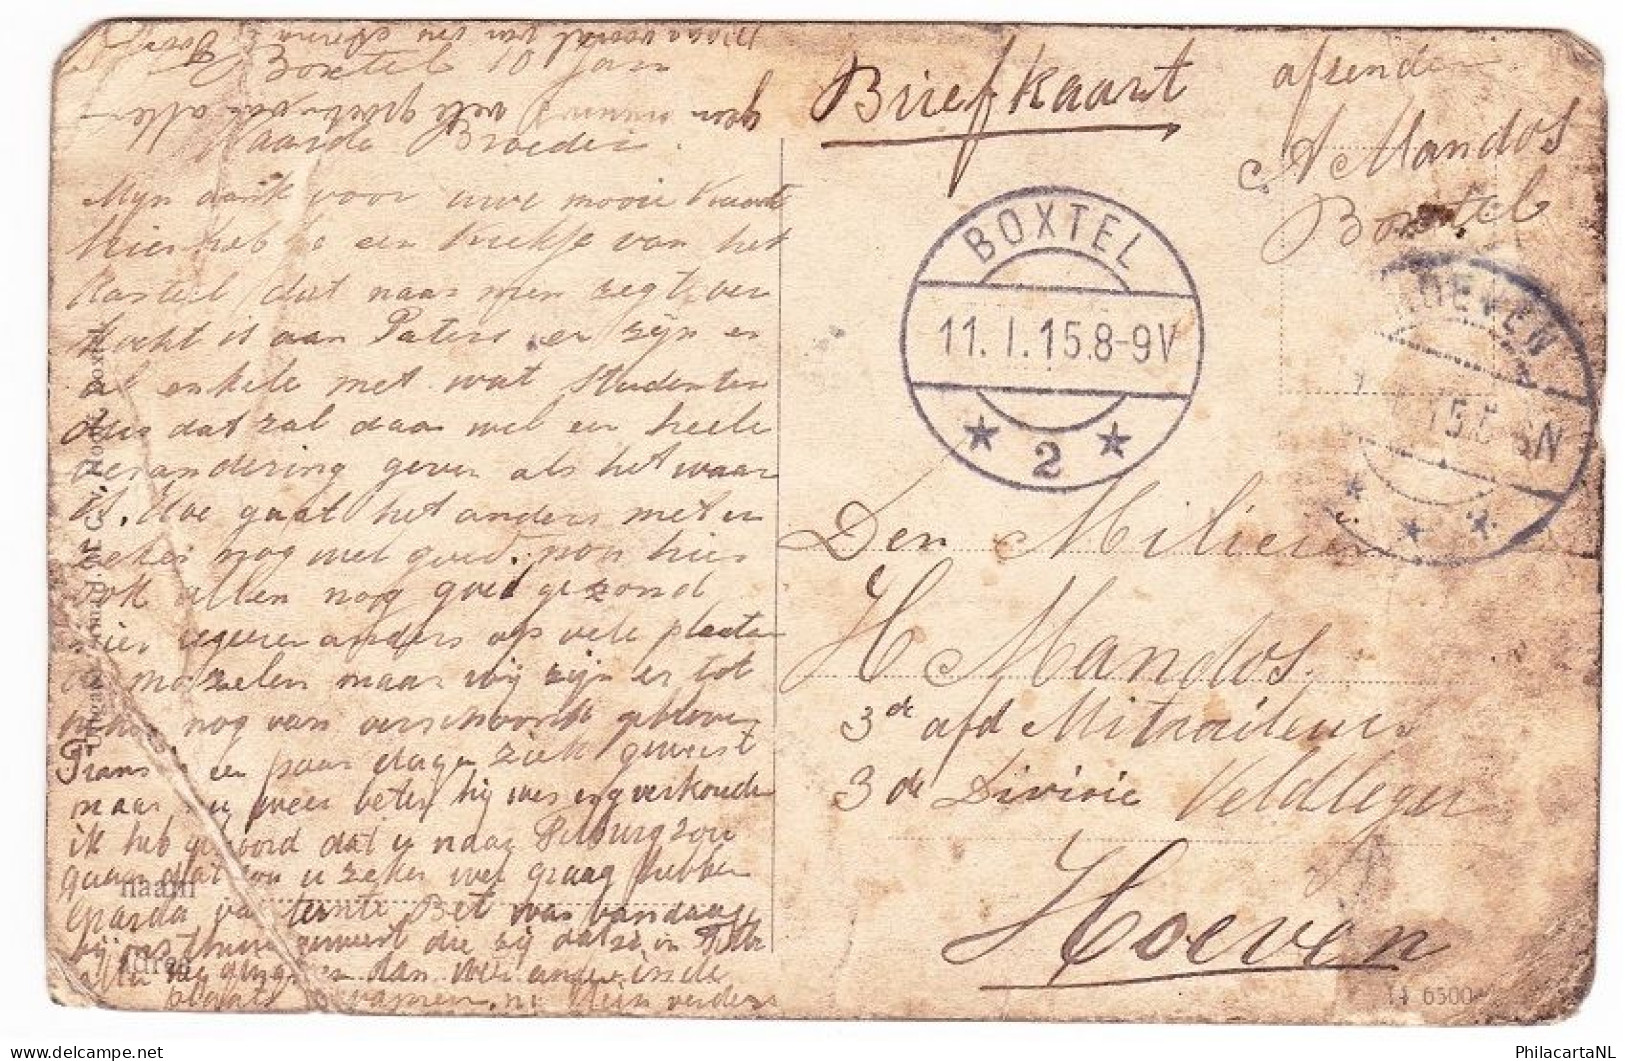 Boxtel 10 Jan
Waarde Broeder.
Mijn dank voor uwe mooie Kaart
hier heb je een Kiekje van het
Kasteel dat naar men zegt ver
kocht is aan Paters er zijn er
al enkele met wat Studenten
dus dat zal daar wel een heele
verandering geven als het waar
is. Hoe gaat het anders met u
zeker nog wel goed. non hier
ook allen nog goed gezond
hier regeeren anders op vele plaatsen
de mazelen maar wij zijn er tot
nog van verschoond gebleven
Frans is een paar dagen ziek geweest
maar nu weer beter hij was erg verkouden
ik heb gehoord dat u naar Tilburg zou
gaan dat zou u zeker wel graag hebben
Bet was vandaag
bij ons thuis geweest die zij dat ze in
dan weer andere in de
plaats kwamen. nu Hein verders
geen nieuws vele groeten van allen
maar vooral van uw
Briefkaart
afzender
A Mandos
Boxtel
BOXTEL
11.I.15.8-9V
2
Den Milicien
H Mandos.
3de afd Mitrailleurs
3de Divisie Veldleger
Hoeven
naam
adres
14 6500
PhilacartaNL